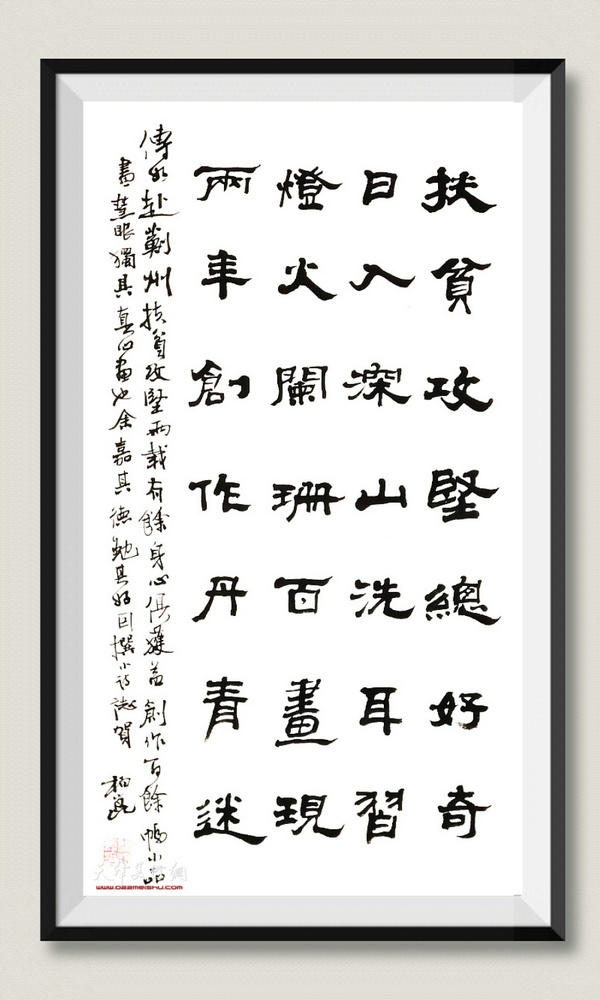 扶貧攻堅總好奇
日入深山洗耳習
燈火闌珊百畫現
兩年創作丹青迷
傳水赴薊州扶貧攻堅兩載有餘身心俱獲益創作百餘幅小品
畫慧眼獨具真心畫也余嘉其德勉其好因撰小詩誌賀
www.022meishu.com